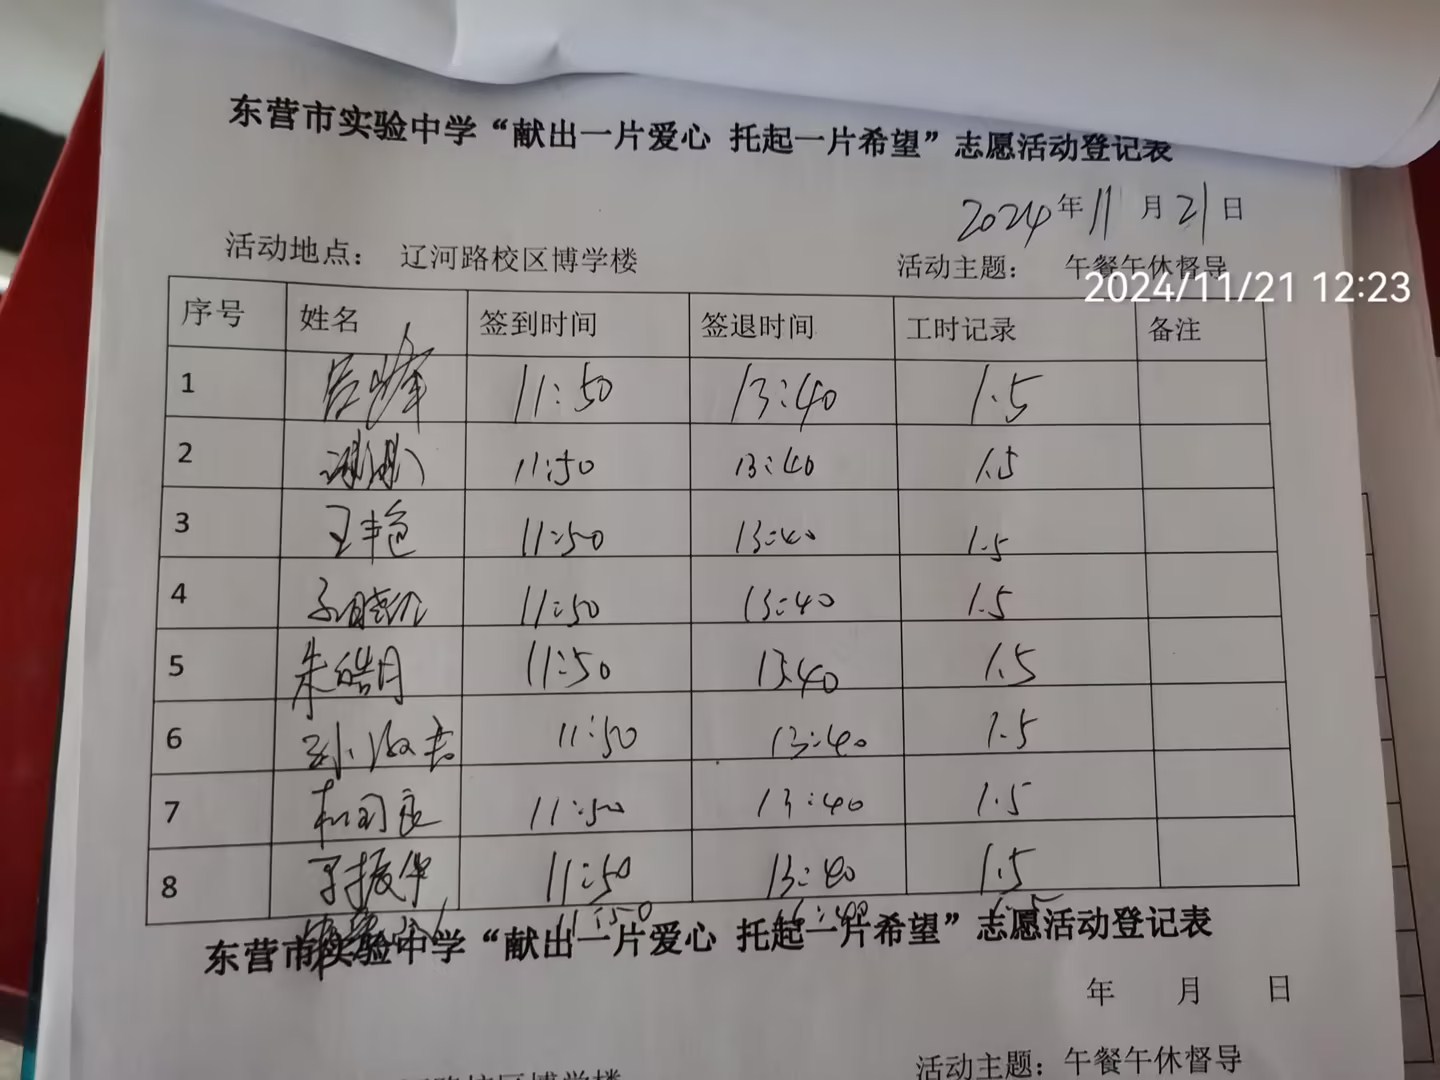 东营市实验中学“献出一片爱心 托起一片希望”志愿活动登记表
2024年11月21日
活动地点： 辽河路校区博学楼 活动主题： 午餐午休督导
2024/11/21 12:23
序号 姓名 签到时间 签退时间 工时记录 备注
1 11:50 13:40 1.5
2 11:50 13:40 1.5
3 王丰色 11:50 13:40 1.5
4 11:50 13:40 1.5
5 朱皓月 11:50 13:40 1.5
6 11:50 13:40 1.5
7 11:50 13:40 1.5
8 于振华 11:50 13:40 1.5
11:50
东营市实验中学“献出一片爱心 托起一片希望”志愿活动登记表
年 月 日
辽河路校区博学楼 活动主题： 午餐午休督导